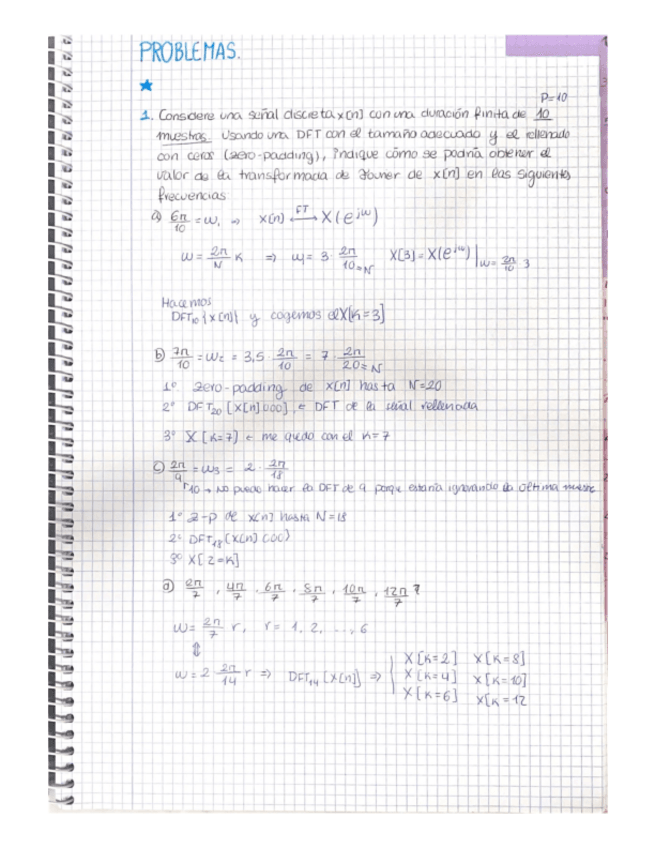 PROBLEMAS.
P=10
1. Considere una señal discreta x[n] con una duración finita de 10
muestras. Usando una DFT con el tamaño adecuado y el rellenado
con ceros (zero-padding), indique cómo se podría obtener el
valor de la transformada de Fourier de x[n] en las siguientes
frecuencias
a) 6π/10 = ω₁ ⇒ x[n] ⟷FT X(e^{jω})
ω = 2π/N k ⇒ ω₁ = 3 · 2π/10=N X[3] = X(e^{jω})|ω=2π/10 3
Hacemos
DFT₁₀{x[n]} y cogemos el X[k=3]
b) 7π/10 = ω₂ = 3,5 · 2π/10 = 7 · 2π/20=N
1º zero-padding de x[n] hasta N=20
2º DFT₂₀ [x[n] 000] ← DFT de la señal rellenada
3º X[k=7] ← me quedo con el k=7
c) 2π/9 = ω₃ = 2 · 2π/18
10 → No puedo hacer la DFT de 9 porque estaría ignorando la última muestra
1º z-p de x[n] hasta N=18
2º DFT₁₈ [x[n] 000]
3º X[2=k]
d) 2π/7, 4π/7, 6π/7, 8π/7, 10π/7, 12π/7 ?
ω = 2π/7 r, r = 1, 2, ..., 6
⇕
ω = 2 2π/14 r ⇒ DFT₁₄ [x[n]] ⇒ { X[k=2] X[k=8]
X[k=4] X[k=10]
X[k=6] X[k=12